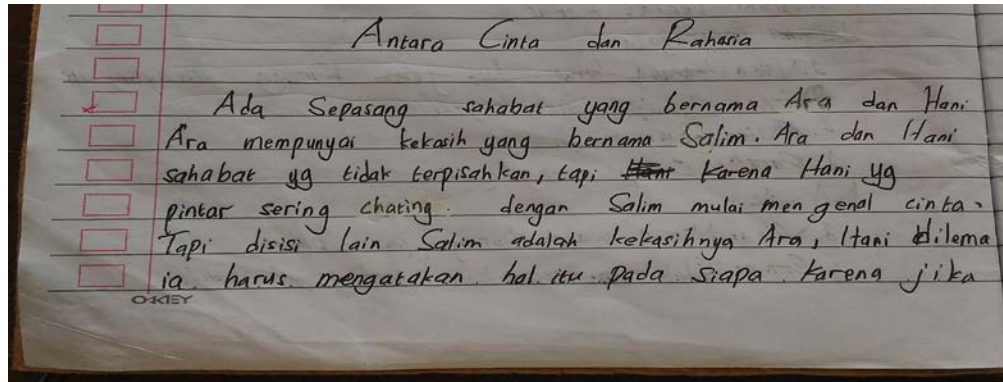 Antara Cinta dan Rahasia
Ada Sepasang sahabat yang bernama Ara dan Hani
Ara mempunyai kekasih yang bernama Salim. Ara dan Hani
sahabat yg tidak terpisahkan, tapi Karena Hani yg
pintar sering chating. dengan Salim mulai mengenal cinta.
Tapi disisi lain Salim adalah kekasihnya Ara, Hani dilema
ia harus mengatakan hal itu pada siapa karena jika
OKEY